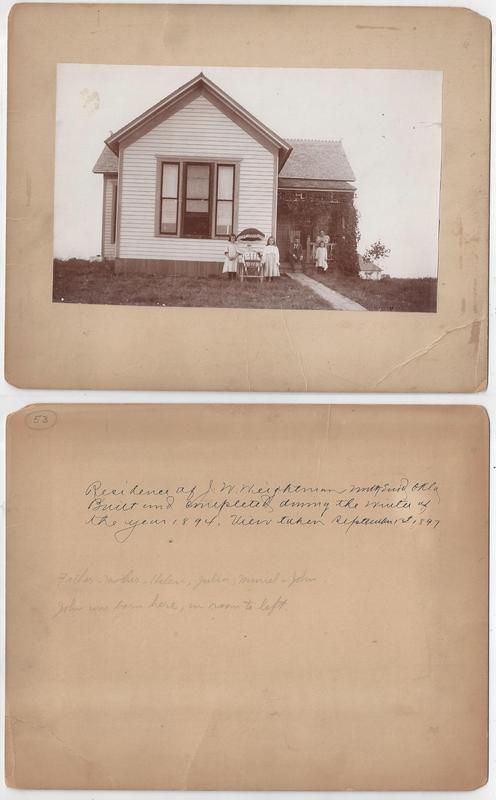 53
Residence of J. W. Weightman North Enid, Okla
Built and completed, during the winter of
the year 1894. View taken September 1st, 1897
Father - Mother - Helen, Julia, Muriel - John.
John was born here, in room to left.